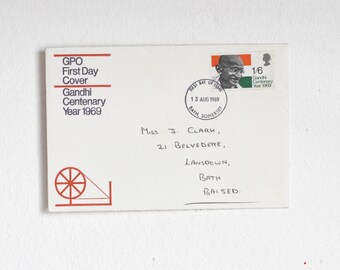 GPO
First Day
Cover
Gandhi
Centenary
Year 1969
1/6
Gandhi
Centenary
Year 1969
FIRST DAY OF ISSUE
13 AUG 1969
BATH, SOMERSET
Miss J. Clark,
21 Belvedere,
Lansdown,
Bath
Raised.